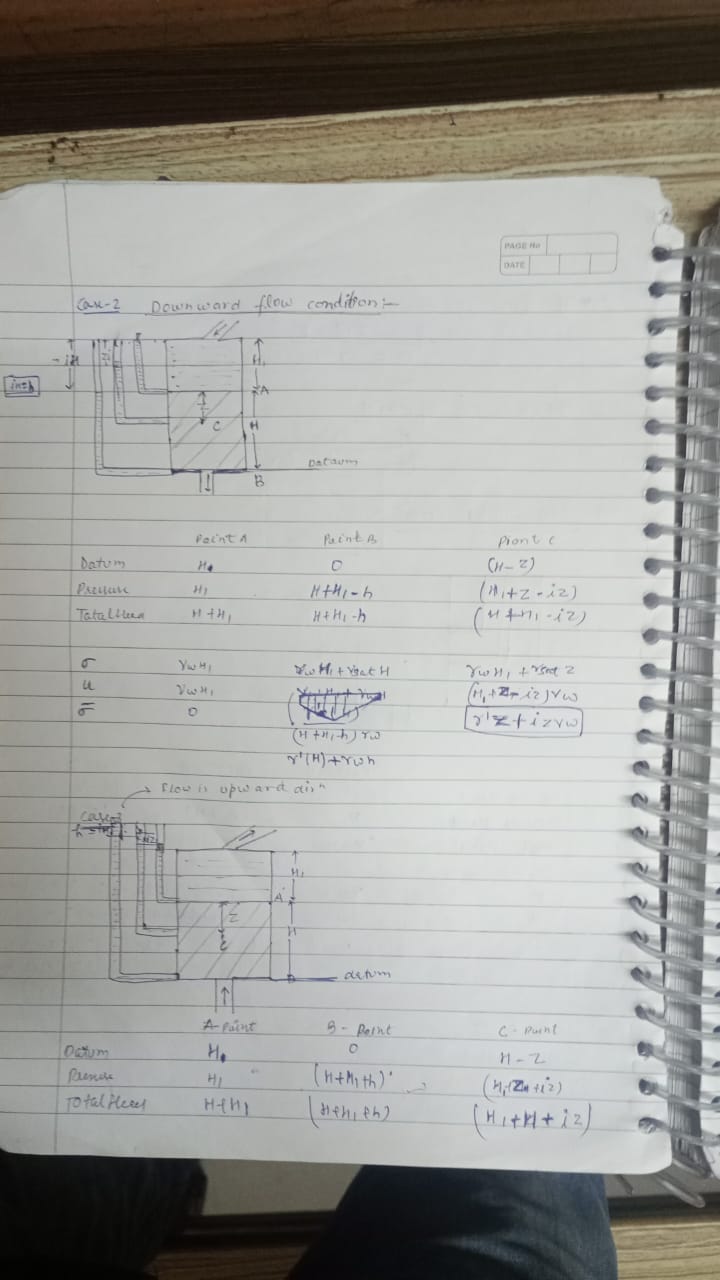 PAGE No
DATE
Case-2 Downward flow condition:-
-iH
H₁
i=zh
A
z
C
H
Datum
B
Point A Point B Piont C
Datum H 0 (H-z)
Pressure H₁ H+H₁-h (H₁+z-iz)
Total Head H+H₁ H+H₁-h (H+H₁-iz)
σ γwH₁ γwH₁+γsat H γwH₁+γsat z
u γwH₁ (H₁+z-iz)γw
σ̄ 0 (H+H₁-h)γw γ'z+izγw
γ'(H)+γwh
→ Flow is upward dirⁿ
Case-3
H₁
A
z
C
H
datum
A-Point B-Point C-Point
Datum H 0 H-z
Pressure H₁ (H+H₁+h) (H₁+z+iz)
Total Head H+H₁ (H+H₁+h) (H₁+H+iz)